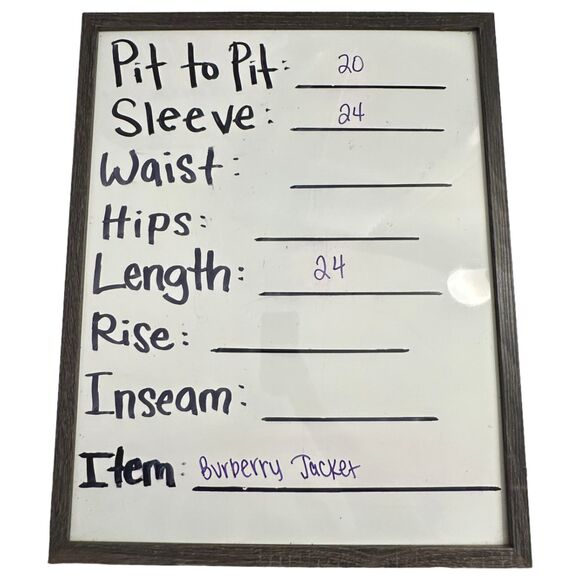 Pit to Pit: 20
Sleeve: 24
Waist:
Hips:
Length: 24
Rise:
Inseam:
Item: Burberry Jacket